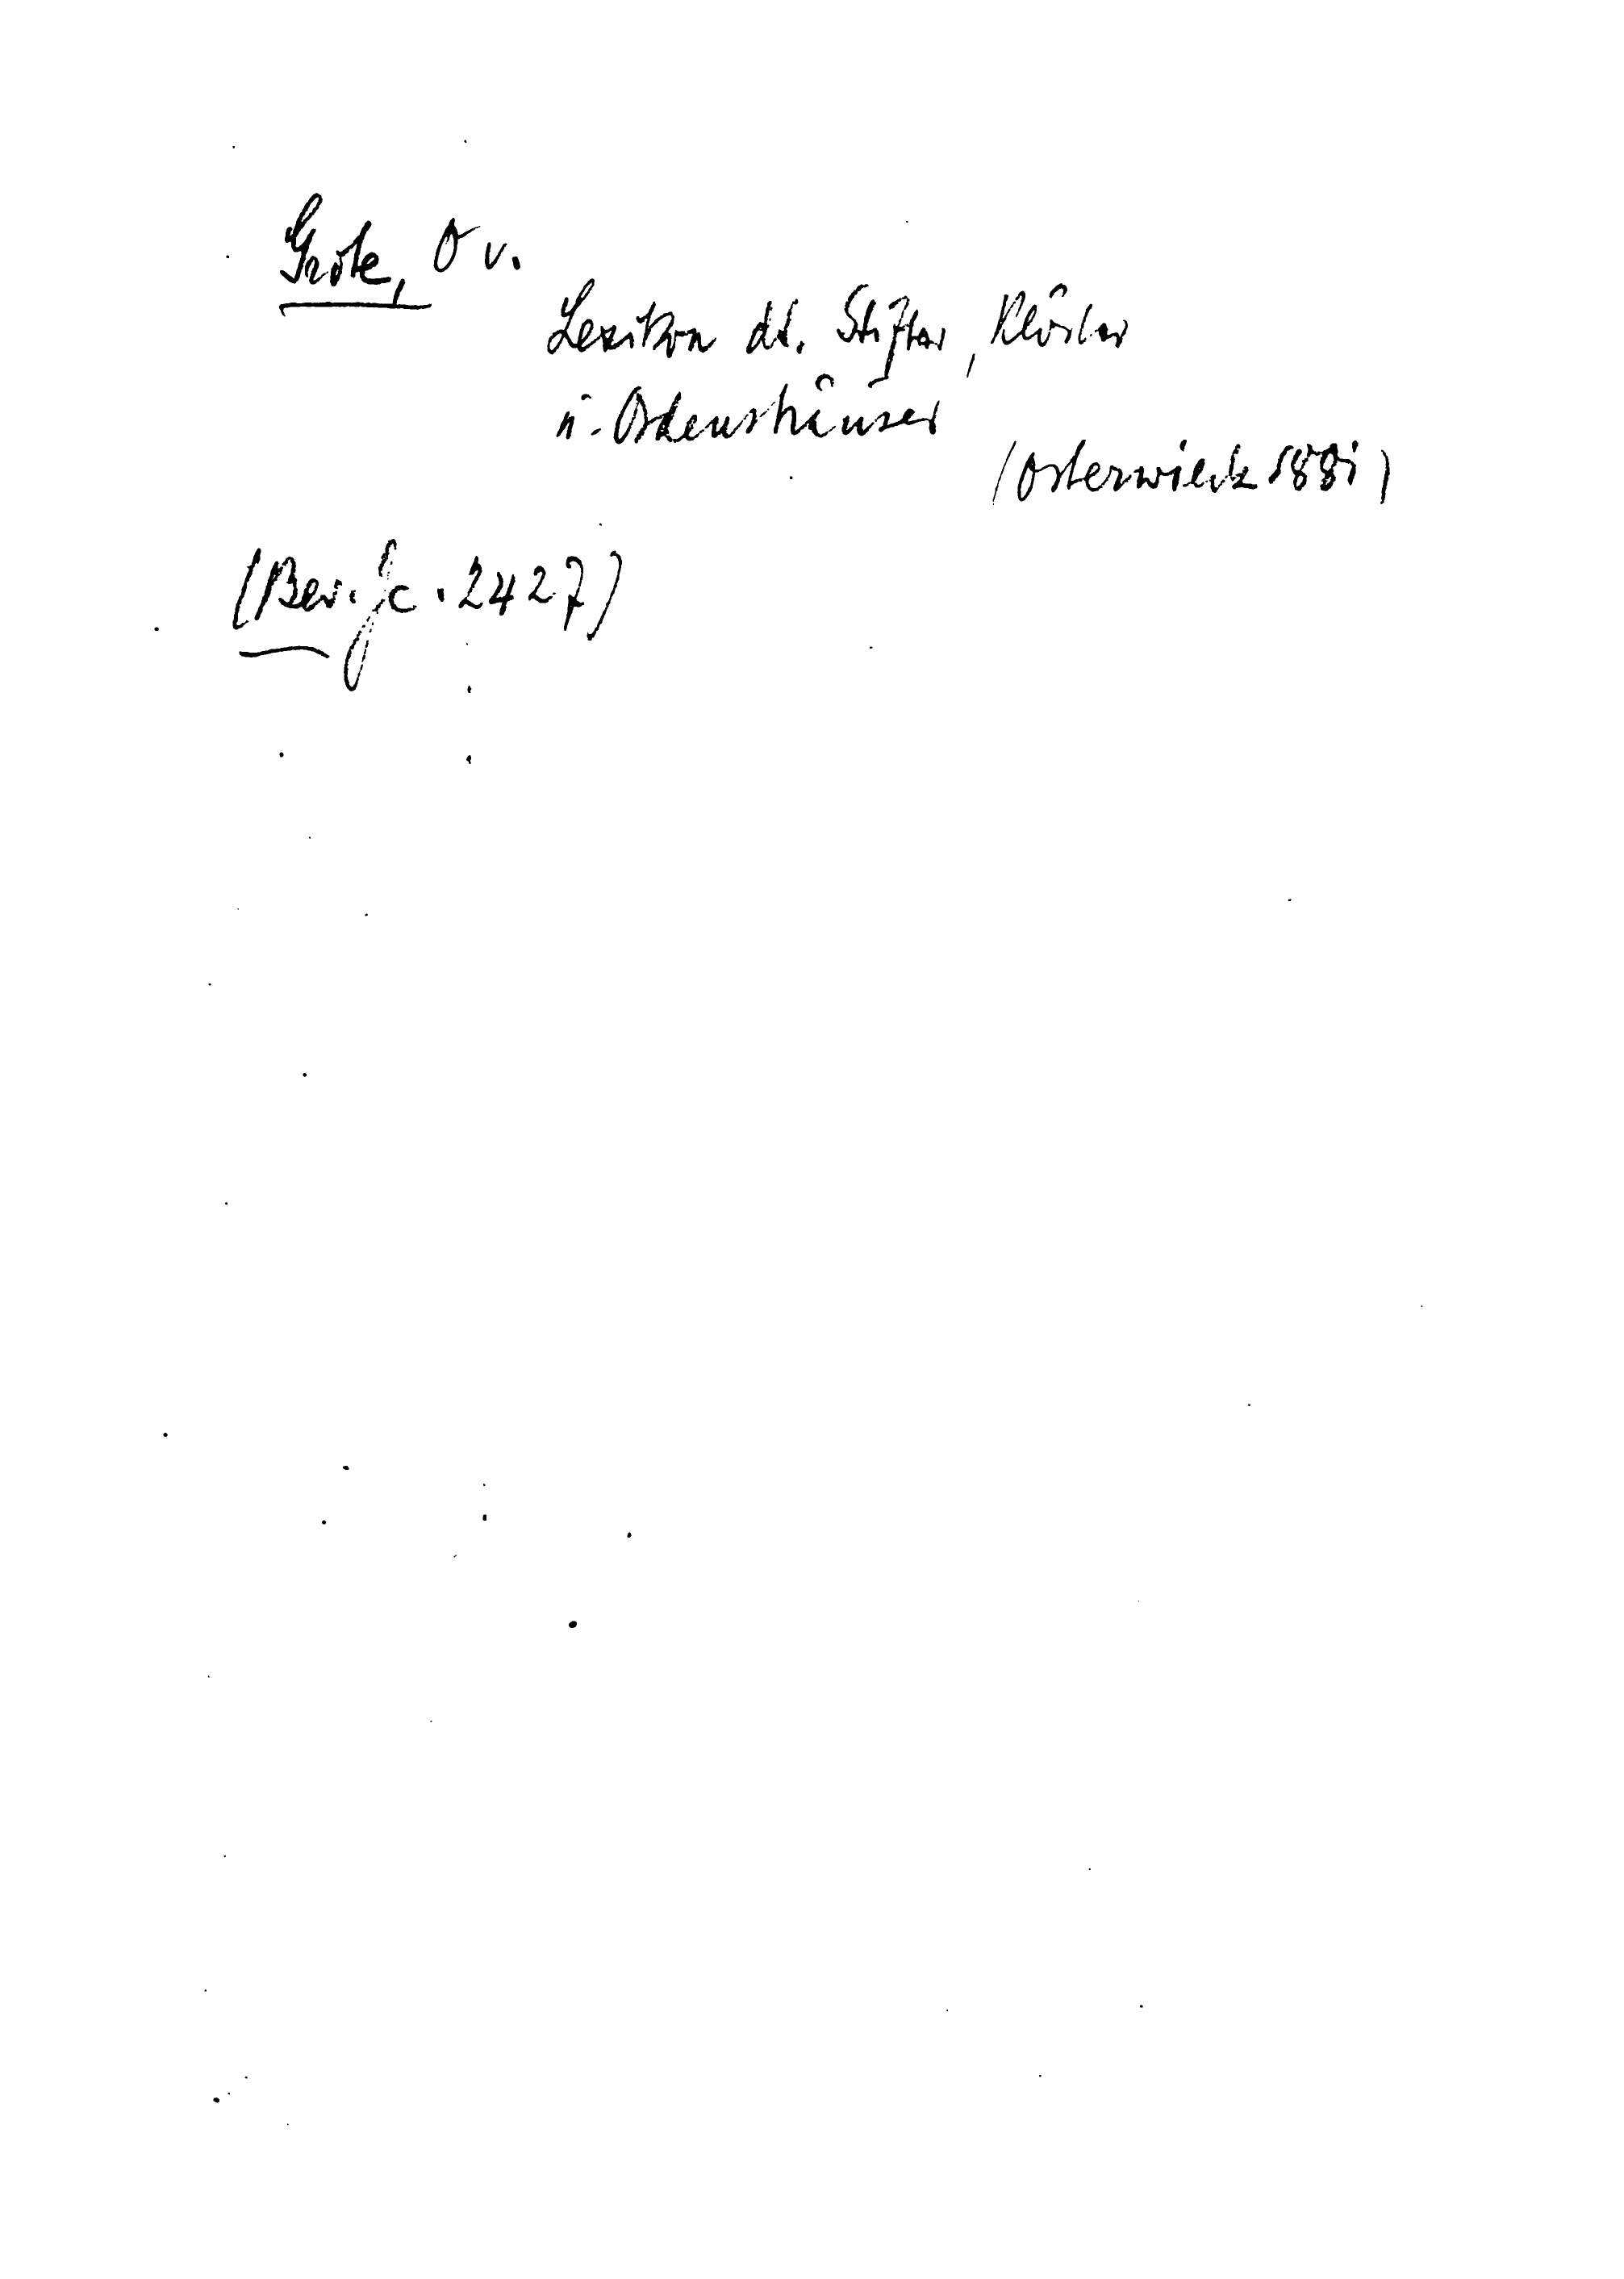 Grote, O v.
Lexikon dt. Stifter, Klöster
u. Ordenshäuser
(Osterwieck 1881)
(Ber. fc. 2427)